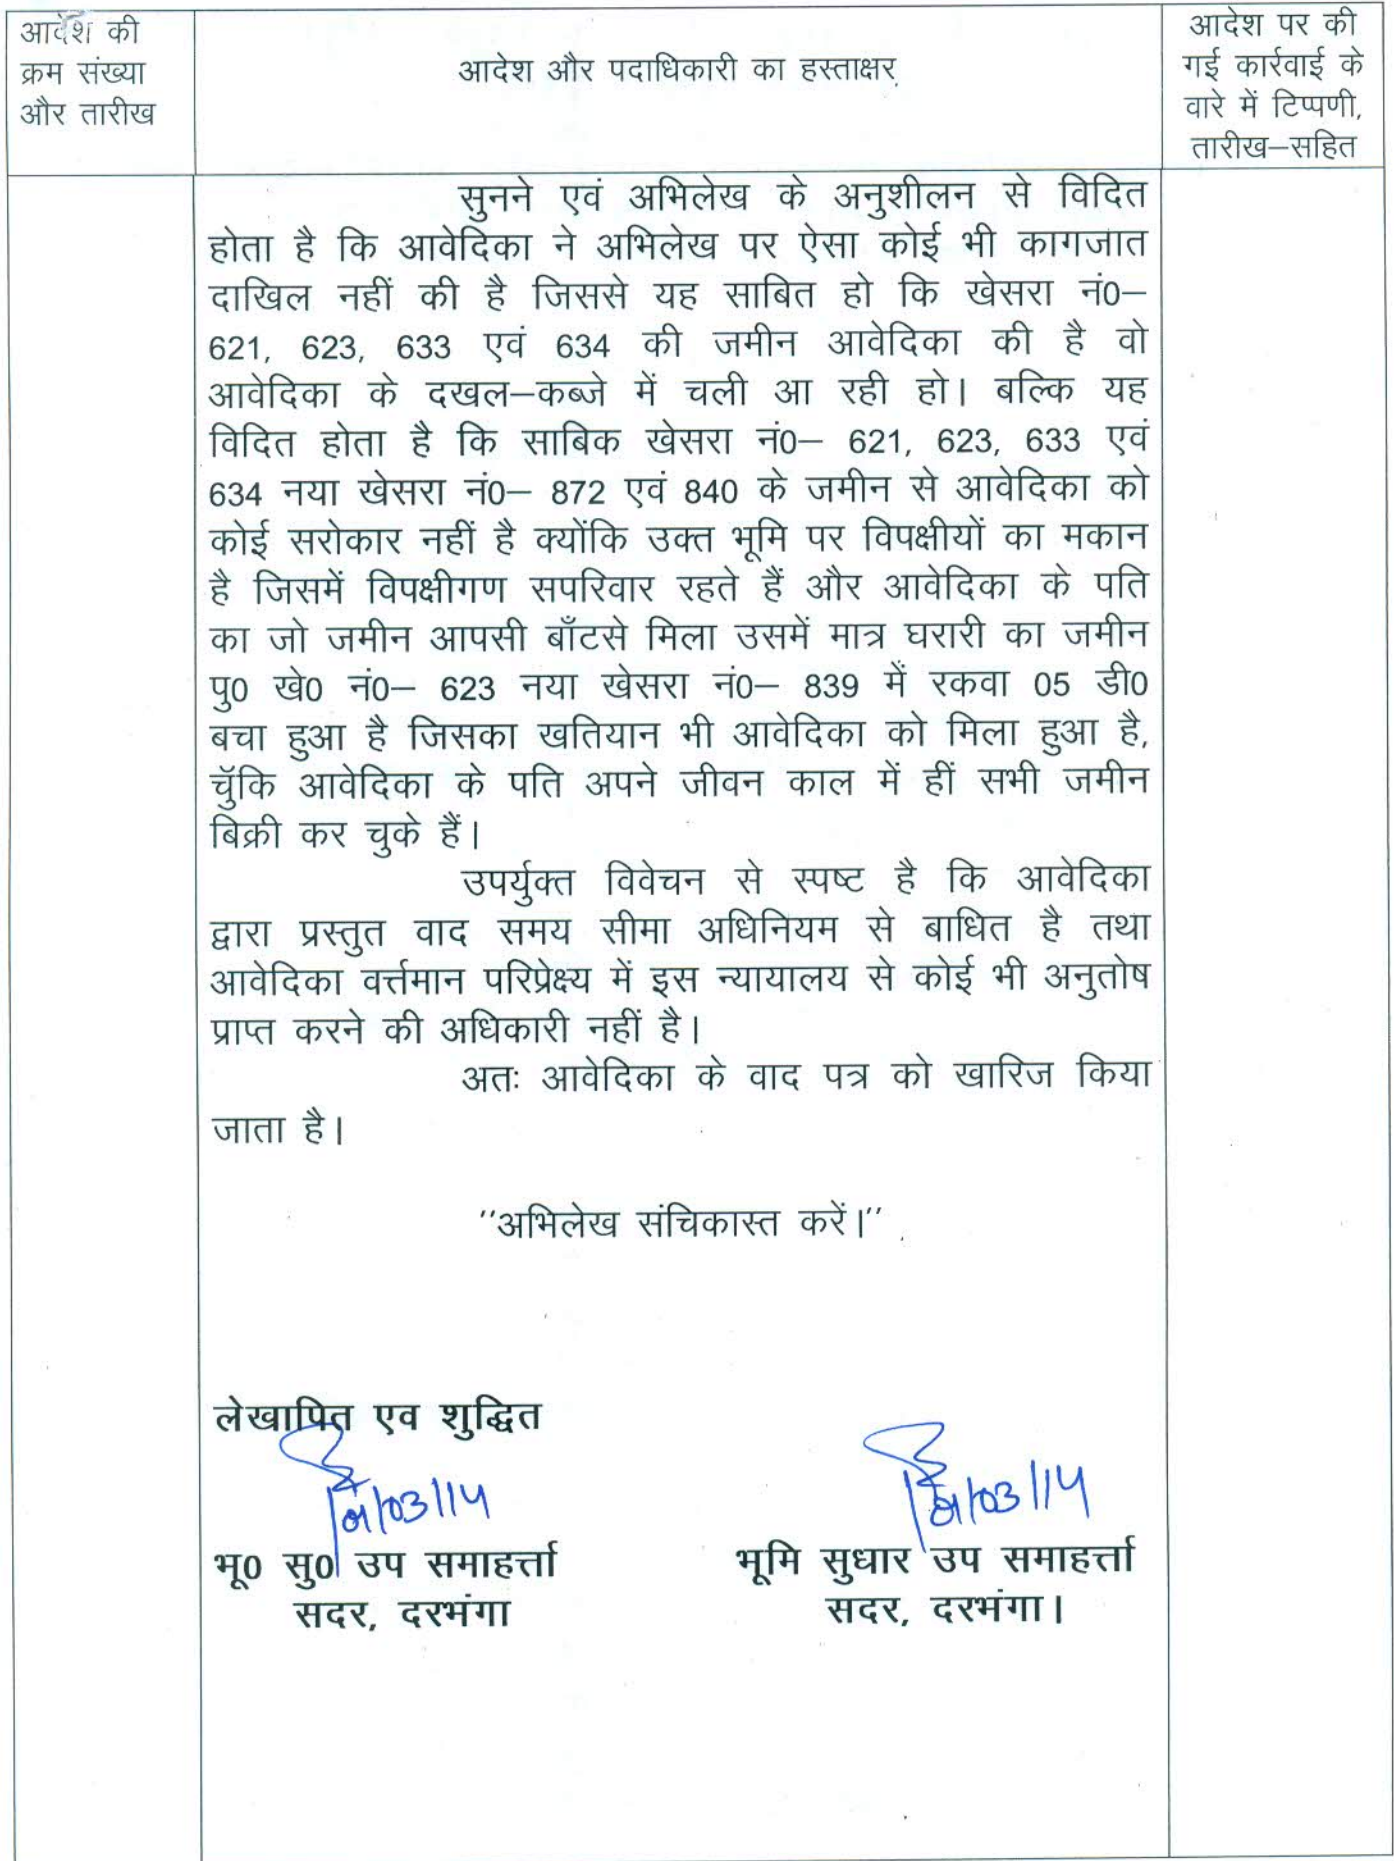 आदेश की
क्रम संख्या
और तारीख
आदेश और पदाधिकारी का हस्ताक्षर
आदेश पर की
गई कार्रवाई के
वारे में टिप्पणी,
तारीख–सहित
सुनने एवं अभिलेख के अनुशीलन से विदित
होता है कि आवेदिका ने अभिलेख पर ऐसा कोई भी कागजात
दाखिल नहीं की है जिससे यह साबित हो कि खेसरा नं0–
621, 623, 633 एवं 634 की जमीन आवेदिका की है वो
आवेदिका के दखल–कब्जे में चली आ रही हो। बल्कि यह
विदित होता है कि साबिक खेसरा नं0– 621, 623, 633 एवं
634 नया खेसरा नं0– 872 एवं 840 के जमीन से आवेदिका को
कोई सरोकार नहीं है क्योंकि उक्त भूमि पर विपक्षीयों का मकान
है जिसमें विपक्षीगण सपरिवार रहते हैं और आवेदिका के पति
का जो जमीन आपसी बाँटसे मिला उसमें मात्र घरारी का जमीन
पु0 खे0 नं0– 623 नया खेसरा नं0– 839 में रकवा 05 डी0
बचा हुआ है जिसका खतियान भी आवेदिका को मिला हुआ है,
चॅुकि आवेदिका के पति अपने जीवन काल में हीं सभी जमीन
बिक्री कर चुके हैं।
उपर्युक्त विवेचन से स्पष्ट है कि आवेदिका
द्वारा प्रस्तुत वाद समय सीमा अधिनियम से बाधित है तथा
आवेदिका वर्त्तमान परिप्रेक्ष्य में इस न्यायालय से कोई भी अनुतोष
प्राप्त करने की अधिकारी नहीं है।
अतः आवेदिका के वाद पत्र को खारिज किया
जाता है।
''अभिलेख संचिकास्त करें।''
लेखापित एव शुद्धित
भू0 सु0 उप समाहर्त्ता
सदर, दरभंगा
भूमि सुधार उप समाहर्त्ता
सदर, दरभंगा।